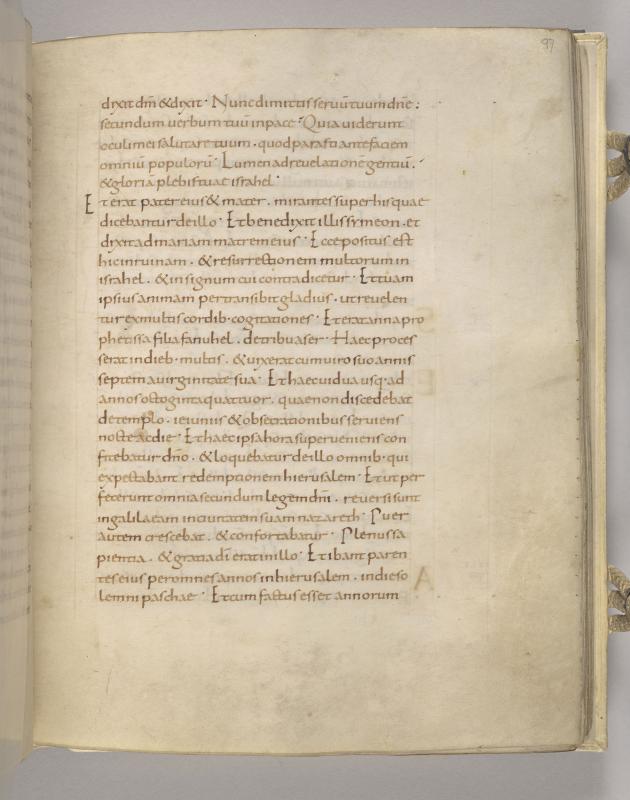 97
dixit dm̄ & dixit · Nunc dimittis seruū tuum dn̄e :
secundum uerbum tuū in pace · Quia uiderunt
oculi mei salutare tuum · quod parasti ante faciem
omniū populorū · Lumen ad reuelationē gentiū ·
& gloriā plebis tuae israhel ·
Et erat pater eius & mater · mirantes super his quae
dicebantur de illo · Et benedixit illis symeon · et
dixit ad mariam matrem eius · Ecce positus est
hic in ruinam · & resurrectionem multorum in
israhel · & in signum cui contradicetur · Et tuam
ipsius animam pertransibit gladius · ut reuelen
tur ex multis cordib· cogitationes · Et erat anna pro
phetissa filia fanuhel · de tribu aser · Haec proces
serat in dieb· multis · & uixerat cum uiro suo annis
septem a uirginitate sua · Et haec uidua usq· ad
annos octoginta quattuor · quae non discedebat
de templo · ieiuniis & obsecrationibus seruiens
nocte ac die · Et haec ipsa hora superueniens con
fitebatur dn̄o · & loquebatur de illo omnib· qui
expectabant redemptionem hierusalem · Et ut per
fecerunt omnia secundum legem dn̄i · reuersi sunt
in galilaeam in ciuitatem suam nazareth · Puer
autem crescebat · & confortabatur · Plenus sa
pientia · & gratia dī erat in illo · Et ibant paren
tes eius per omnes annos in hierusalem · in die so
lemni paschae · Et cum factus esset annorum